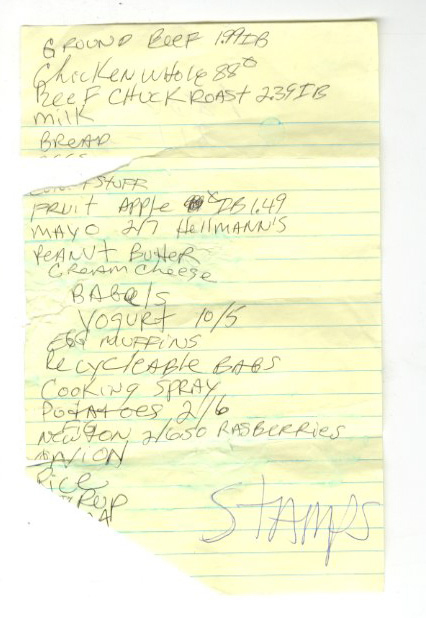 GROUND BEEF 1.99 LB
Chicken Whole 88¢
BEEF CHUCK ROAST 2.39 LB
MILK
BREAD
STUFF
FRUIT APPLE LB 1.49
MAYO 2/7 HELLMANN'S
PEANUT BUTTER
CREAM CHEESE
BAGELS
YOGURT 10/5
MUFFINS
RECYCLEABLE BAGS
COOKING SPRAY
POTATOES 2/6
FIG
NEWTON 2/650 RASBERRIES
RICE
STAMPS